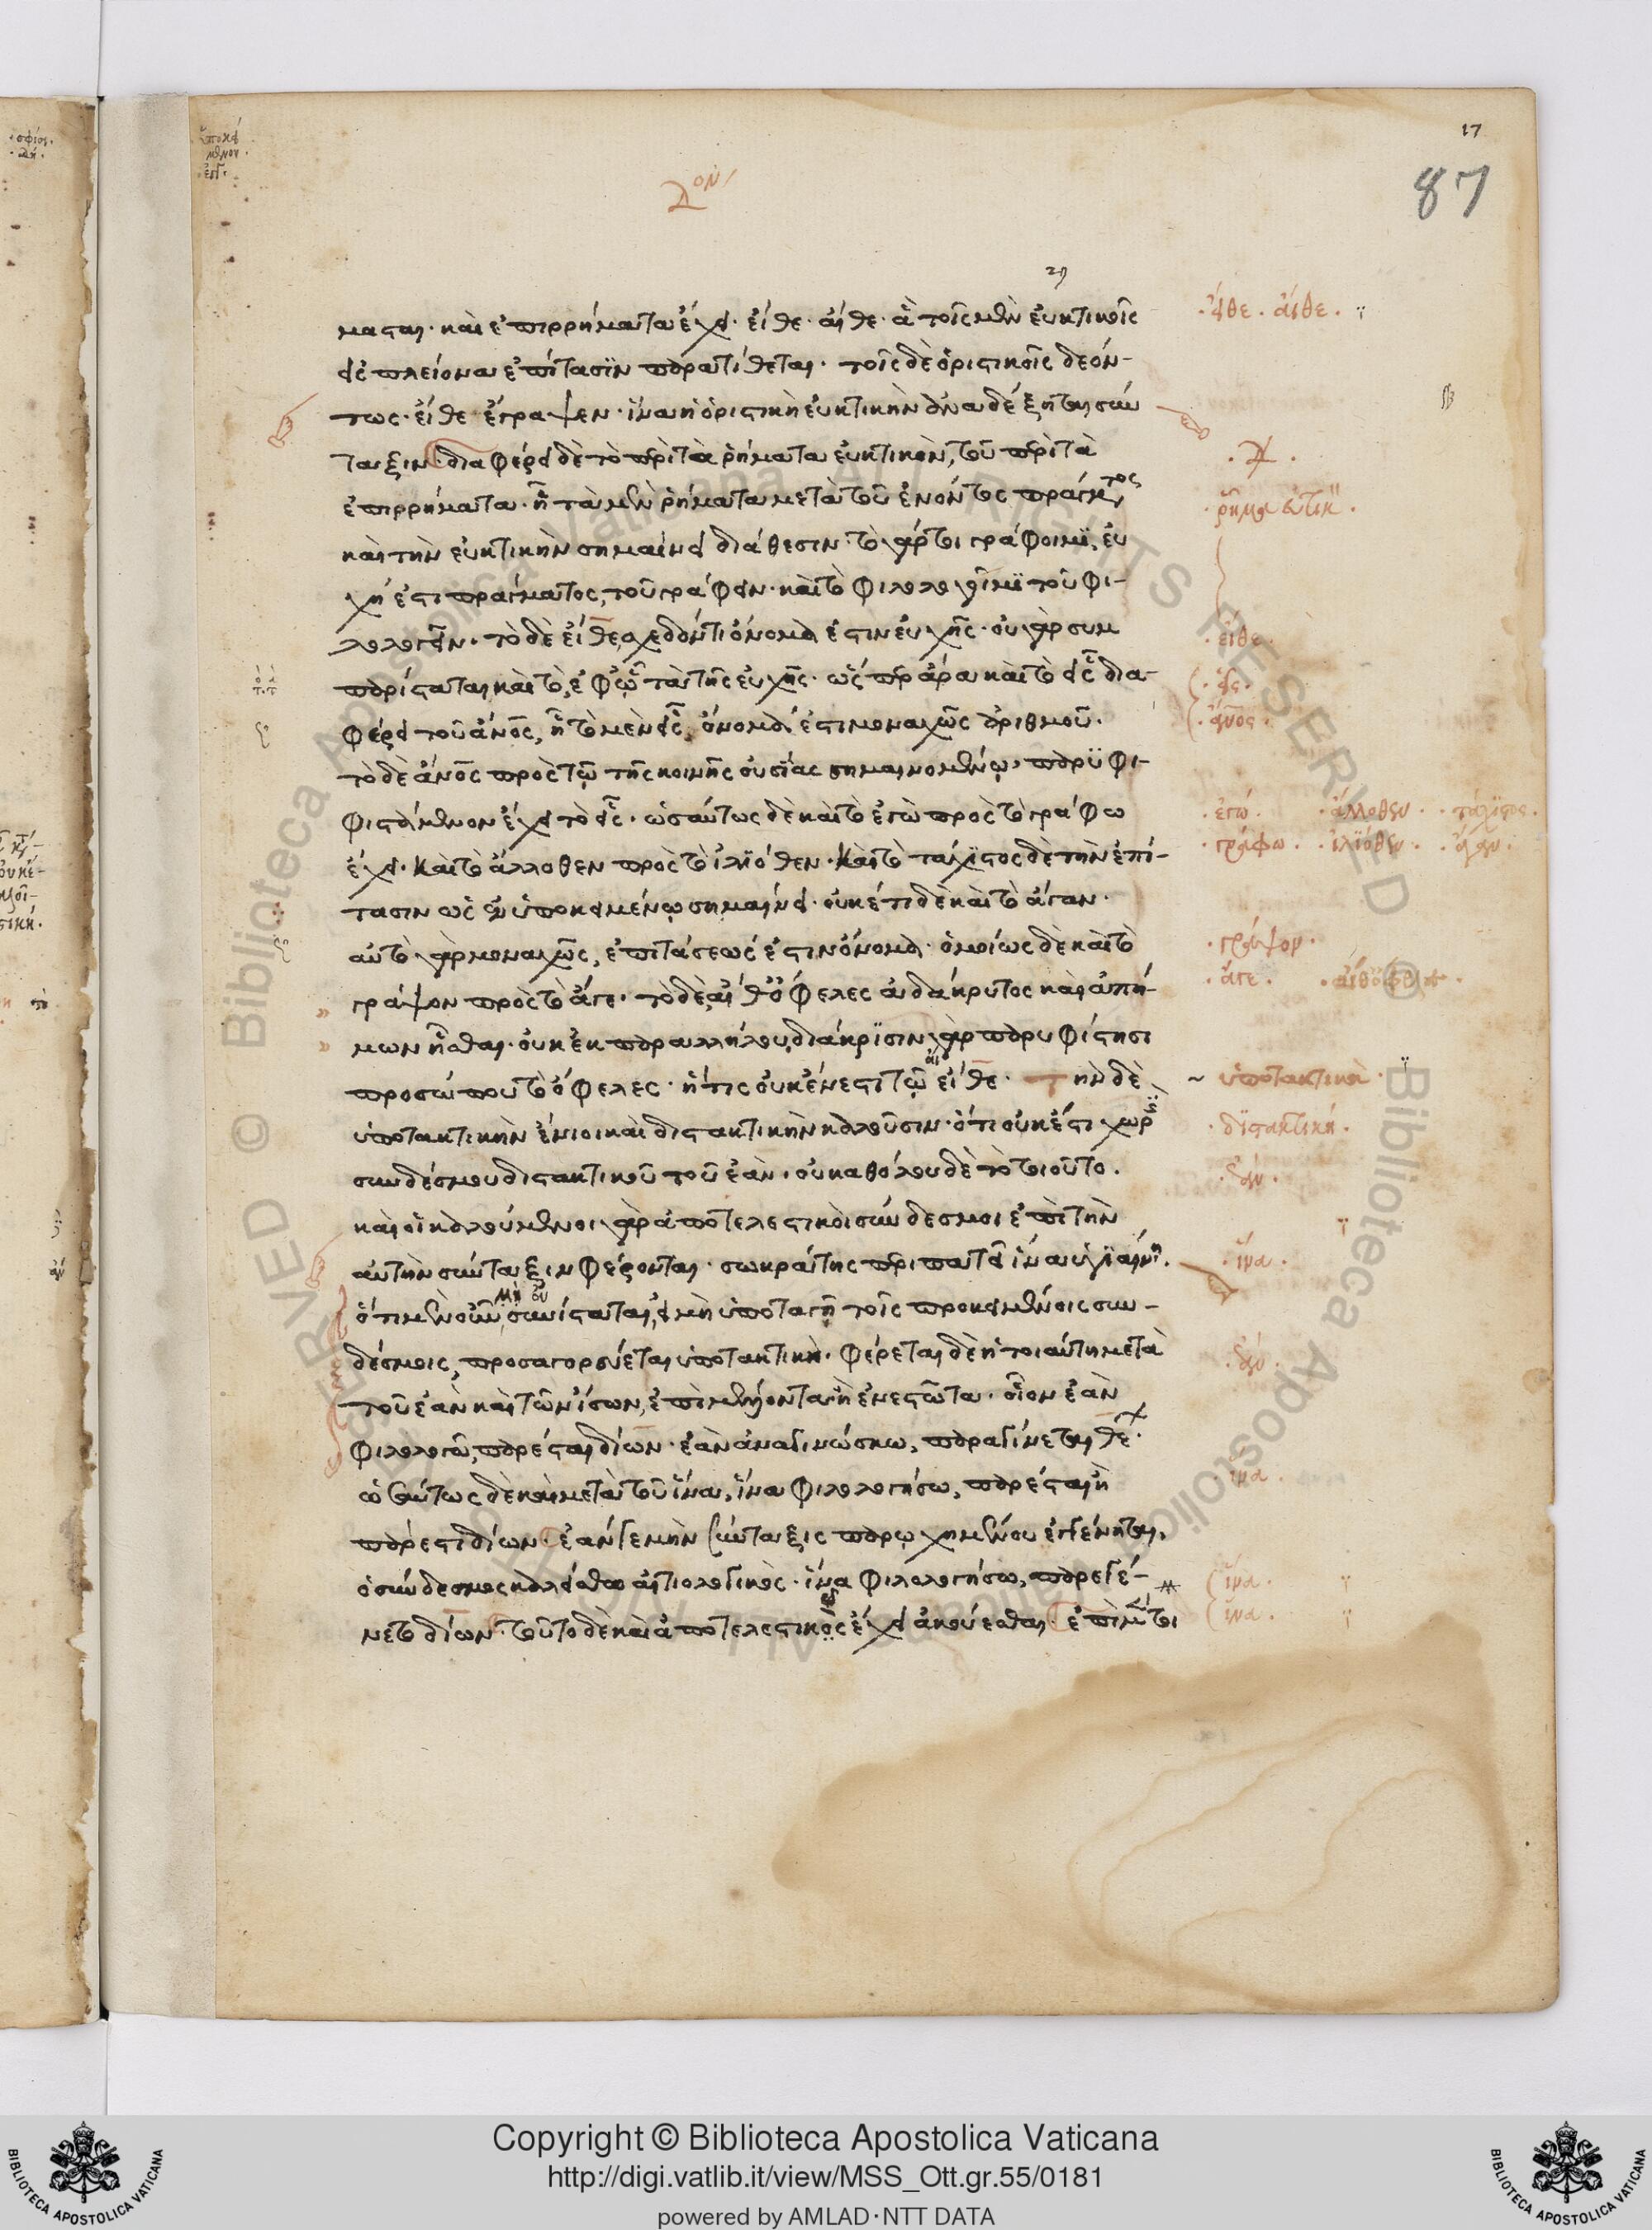 17
87
λον
μαται· καὶ ἐπιρρήματα ἔχει· εἴθε· αἴθε· ἃ τοῖς μὲν εὐκτικοῖς
εἰς πλείονα ἐπίτασιν παρατίθεται· τοῖς δὲ ὁριστικοῖς δεόν-
τως· εἴθε ἔγραψεν· ἵνα ἡ ὁριστικὴ εὐκτικὴν ἀναδέξηται σύν
ταξιν· διαφέρει δὲ τὸ περὶ τὰ ῥήματα εὐκτικὸν, τοῦ περὶ τὰ
ἐπιρρήματα· ᾗ τὰ μὲν ῥήματα μετὰ τοῦ ἐνόντος πράγματος
καὶ τὴν εὐκτικὴν σημαίνει διάθεσιν· τὸ γάρ τοι γράφοιμι, εὐ
χή ἐστι πράγματος, τοῦ γράφειν· καὶ τὸ φιλολογοῖμι τοῦ φι-
λολογεῖν· τὸ δὲ εἴθε, σχεδόν τι ὄνομά ἐστιν εὐχῆς· οὐ γὰρ συμ
παρίσταται καὶ τὸ, ἐφ' ᾧ τὰ τῆς εὐχῆς· ὥσπερ ἄρα καὶ τὸ εἷς δια-
φέρει τοῦ ἄνος, ᾗ τὸ μὲν εἷς, ὄνομά ἐστι μοναχῶς ἀριθμοῦ·
τὸ δὲ ἄνος πρὸς τῷ τῆς κοινῆς οὐσίας σημαινομένῳ, παρυφι-
φιστάμενον ἔχει τὸ εἷς· ὡσαύτως δὲ καὶ τὸ ἐγὼ πρὸς τὸ γράφω
ἔχει· καὶ τὸ ἄλλοθεν πρὸς τὸ ἰλιόθεν· καὶ τὸ τάχιστος δὲ τὴν ἐπί-
τασιν ὡς ἐν ὑποκειμένῳ σημαίνει· οὐκέτι δὲ καὶ τὸ ἄγαν·
αὐτὸ γὰρ μοναχῶς, ἐπιτάσεώς ἐστιν ὄνομα· ὁμοίως δὲ καὶ τὸ
γράψον πρὸς τὸ ἄγε· τὸ δὲ, αἴθ' ὄφελες ἀδάκρυτος καὶ ἀπή-
μων ἧσθαι· οὐκ ἐκ παραλλήλου, διάκρισιν γὰρ παρυφίστησι
προσώπου τὸ ὄφελες· ἥτις οὐκ ἔνεστι τῷ εἴθε· τὴν δὲ
ὑποτακτικὴν ἔνιοι καὶ διστακτικὴν καλοῦσιν· ὅτι οὐκ ἔστι χωρὶς
συνδέσμου διστακτικοῦ τοῦ ἐάν· οὐ καθόλου δὲ τὸ τοιοῦτο.
καὶ οἱ καλούμενοι γὰρ ἀποτελεστικοὶ σύνδεσμοι ἐπὶ τὴν
αὐτὴν σύνταξιν φέρονται· σωκράτης περιπατεῖ ἵνα ὑγιαίνῃ.
ὅτι μὲν οὖν, συνίσταται, εἰ μὴ ὑποταγῇ τοῖς προκειμένοις συν-
δέσμοις, προσαγορεύεται ὑποτακτική· φέρεται δὲ ἡ τοιαύτη μετὰ
τοῦ ἐὰν καὶ τῶν ἴσων, ἐπὶ μέλλοντα ἢ ἐνεστῶτα· οἷον ἐὰν
φιλολογῶ, παρέσται δίων· ἐὰν ἀναγινώσκω, παραγίνεται θέ·
οὕτως δὲ καὶ μετὰ τοῦ ἵνα, ἵνα φιλολογήσω, παρέσται ἢ
πάρεστι δίων· ἐάν γε μὴν σύνταξις παρῳχημένου ἐγγένηται,
ὁ σύνδεσμος καλείσθω αἰτιολογικός· ἵνα φιλολογήσω, παρεγέ-
νετο δίων· τοῦτο δὲ καὶ ἀποτελεστικὸς ἔχει ἀκούεσθαι· ἐπὶ μέντοι
εἴθε· αἴθε·
εἴθε·
εἷς·
ἄνος·
ἐγώ· ἄλλοθεν· τάχιστος·
γράφω· ἰλιόθεν· ἄγαν·
γράψον·
ἄγε·
ὑποτακτικὴ·
διστακτική·
ἐάν·
ἵνα·
ἐάν·
ἵνα·
ἵνα·
ἵνα·
© Biblioteca Apostolica Vaticana ALL RIGHTS RESERVED
Copyright © Biblioteca Apostolica Vaticana
http://digi.vatlib.it/view/MSS_Ott.gr.55/0181
powered by AMLAD·NTT DATA
BIBLIOTECA APOSTOLICA VATICANA
BIBLIOTECA APOSTOLICA VATICANA